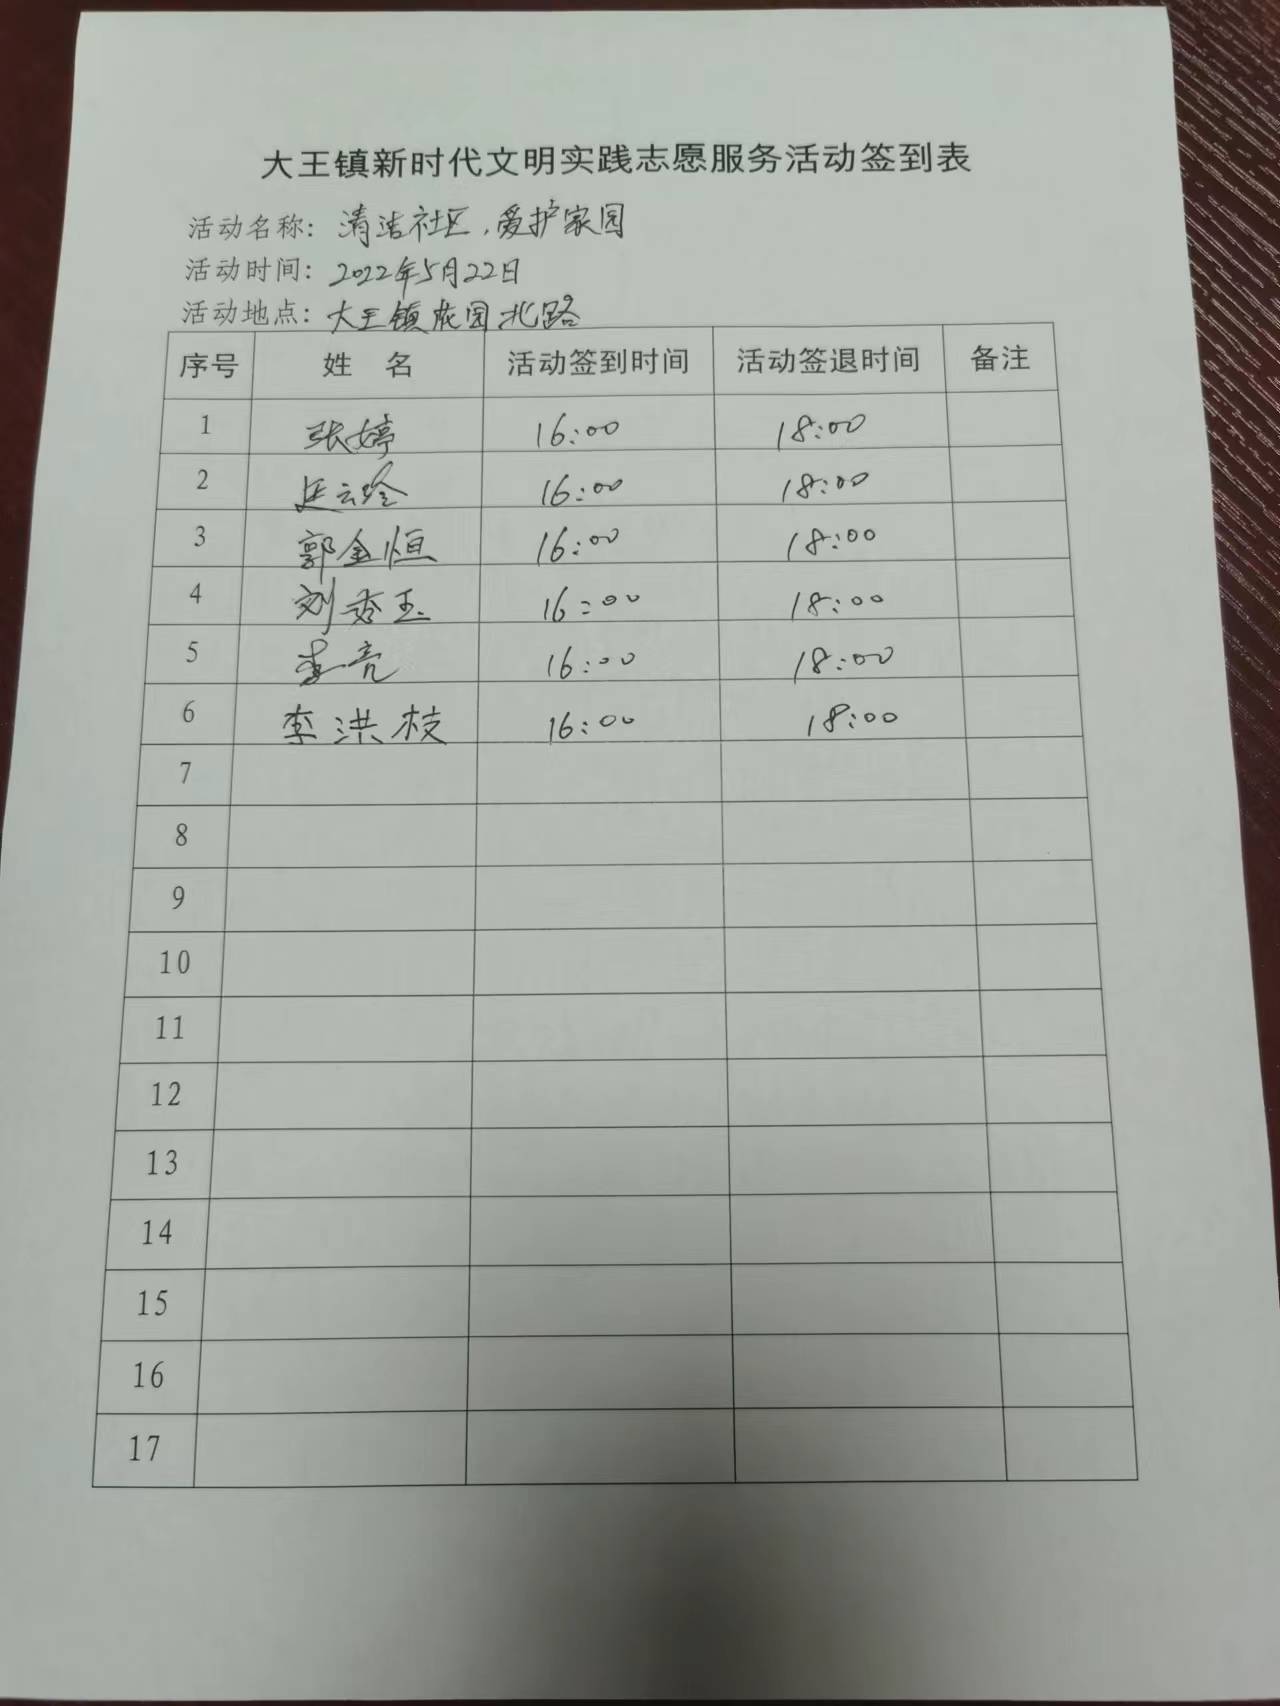 大王镇新时代文明实践志愿服务活动签到表
活动名称：清洁社区，爱护家园
活动时间：2022年5月22日
活动地点：大王镇花园北路
序号 姓 名 活动签到时间 活动签退时间 备注
1 张婷 16:00 18:00
2 延云玲 16:00 18:00
3 郭金恒 16:00 18:00
4 刘秀玉 16:00 18:00
5 李亮 16:00 18:00
6 李洪枝 16:00 18:00
7
8
9
10
11
12
13
14
15
16
17